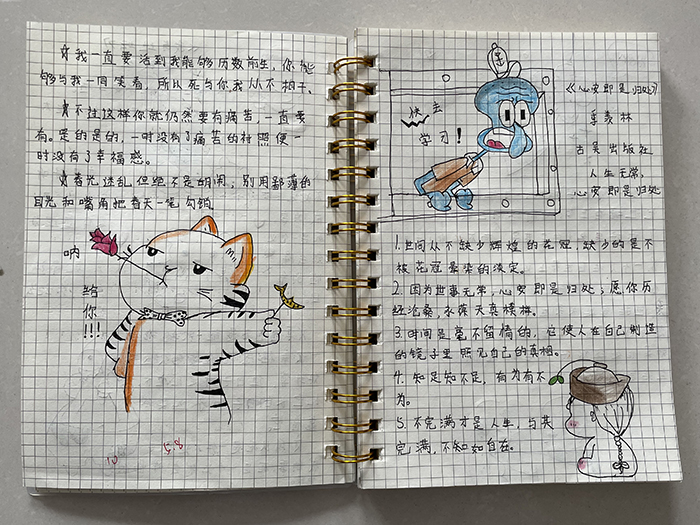 ☆我一直要活到我能够历数前生，你能
够与我一同笑看，所以死与你我从不相干。
☆不过这样你就仍然要有痛苦，一直要
有。是的是的，一时没有了痛苦的衬照便一
时没有了幸福感。
☆春光迷乱但绝不是胡闹，别用鄙薄的
目光和嘴角把春天一笔勾销
呐
给
你
!!!
快去
学习！
《心安即是归处》
季羡林
古吴出版社
人生无常，
心安即是归处
1.世间从不缺少辉煌的花冠，缺少的是不
被花冠晕染的淡定。
2.因为世事无常，心安即是归处；愿你历
经沧桑，永葆天真模样。
3.时间是毫不留情的，它使人在自己制造
的镜子里照见自己的真相。
4.知足知不足，有为有不
为。
5.不完满才是人生，与其
完满，不知如自在。